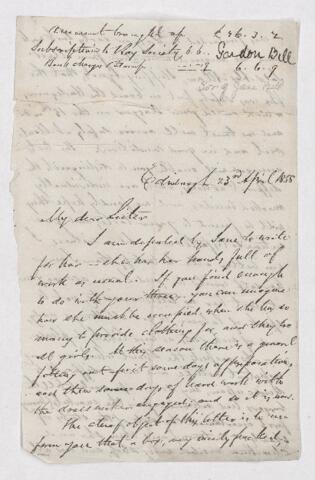 Amount brought up £26. 3. 2
Subscription to Ray Society 6.6. Gordon Bell
Bank charges & Stamp 6. 6. 9
Son of Jane Bell
Edinburgh 23rd April 1858
My dear Sister
I am deputed by Jane to write
for her — she has her hands full of
work as usual. If you find enough
to do with your three, you can imagine
how she must be occupied when she has so
many to provide clothing for, and they too
all girls. At this season there is a general
fitting out first some days of preparation,
and then some days of hard work with
the dress maker engaged, and so it is now.
The chief object of this letter is to
inform you that a box, very nicely packed